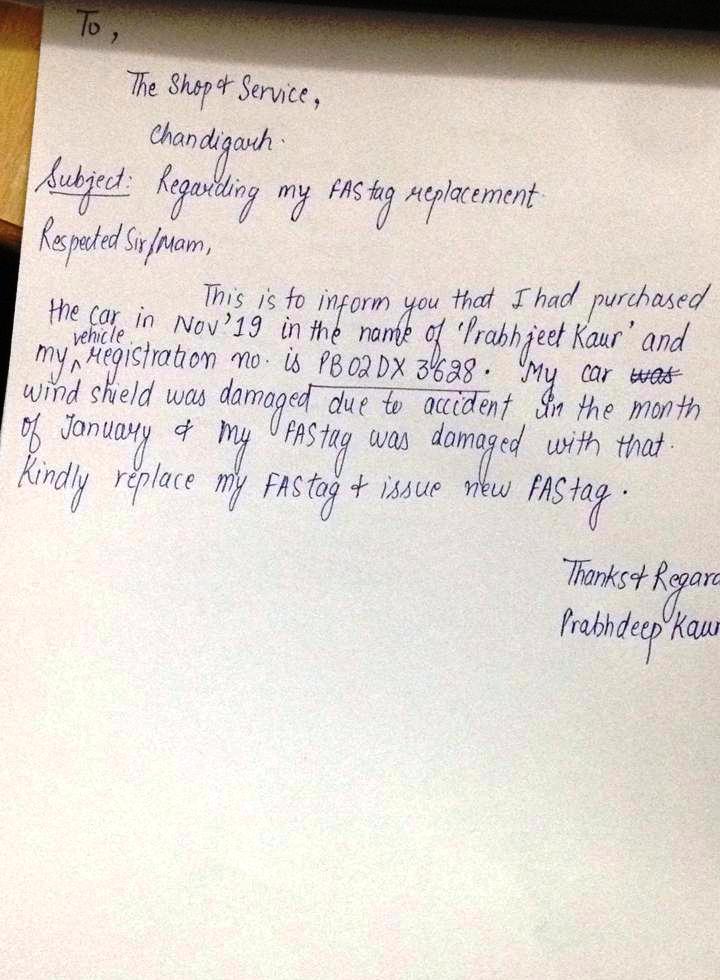 To,
The Shop & Service,
Chandigarh.
Subject: Regarding my FAStag replacement.
Respected Sir/Mam,
This is to inform you that I had purchased
the car in Nov'19 in the name of 'Prabhjeet Kaur' and
my vehicle registration no. is PB02DX 3628. My car was
wind shield was damaged due to accident in the month
of January & my FAStag was damaged with that.
Kindly replace my FAStag & issue new FAStag.
Thanks & Regard
Prabhdeep Kaur